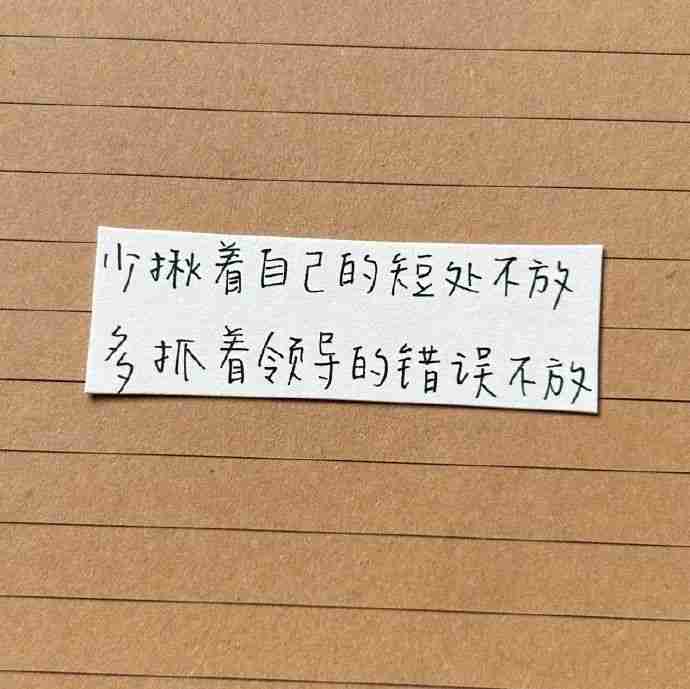 少揪着自己的短处不放
多抓着领导的错误不放